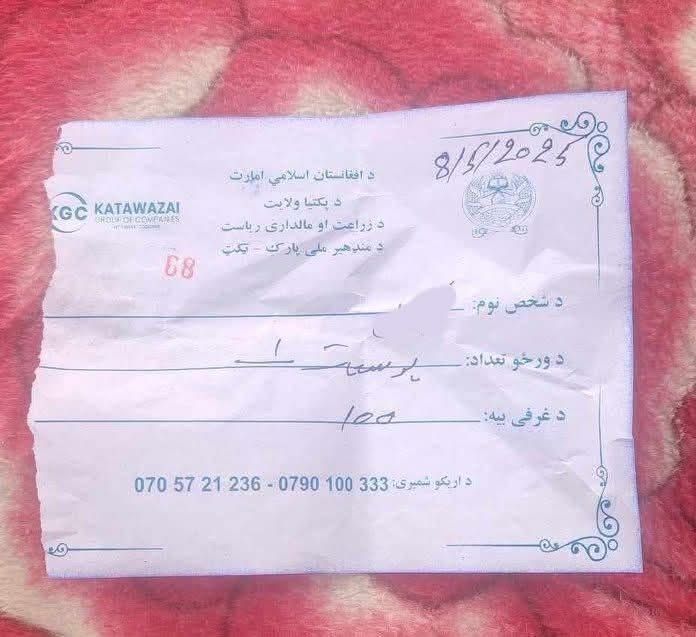 8/5/2025
د افغانستان اسلامي امارت
د پکتیا ولایت
د زراعت او مالداری ریاست
د مندهیر ملي پارک - ټکټ
KGC KATAWAZAI
GROUP OF COMPANIES
68
د شخص نوم:
د ورځو تعداد: ۱
د غرفي بیه: 100
د اړیکو شمیری: 070 57 21 236 - 0790 100 333